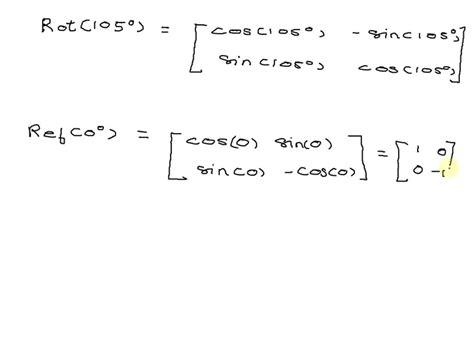 Rot(105°) = [ cos(105°) -sin(105°) ]
[ sin(105°) cos(105°) ]
Ref(0°) = [ cos(0) sin(0) ] = [ 1 0 ]
[ sin(0) -cos(0) ] [ 0 -1 ]